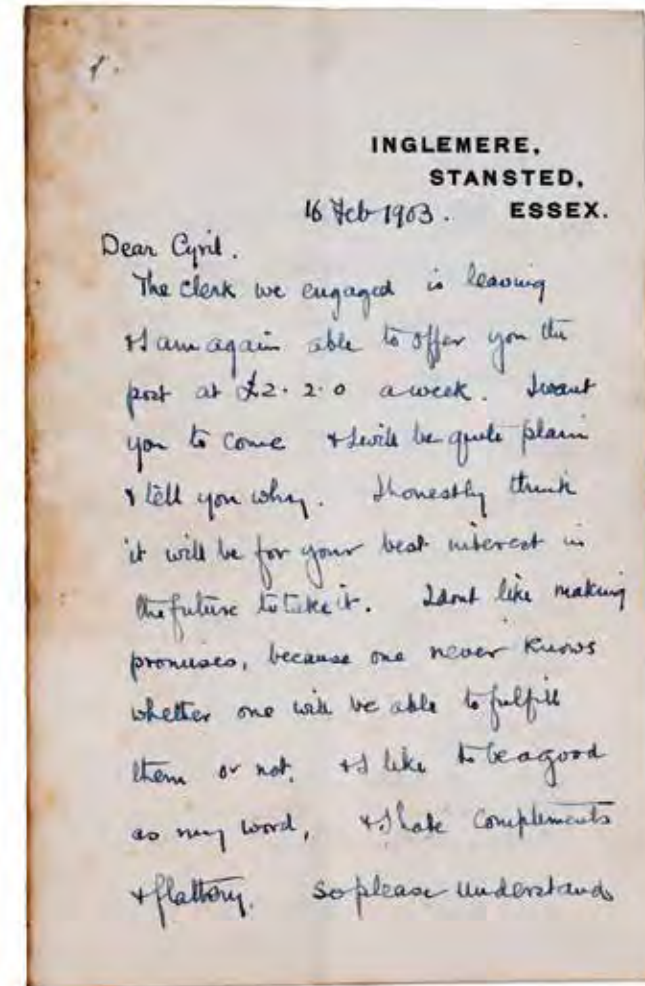 1.
INGLEMERE,
STANSTED,
16 Feb 1903. ESSEX.
Dear Cyril.
The clerk we engaged is leaving
& I am again able to offer you the
post at £2.2.0 a week. I want
you to come & I will be quite plain
& tell you why. I honestly think
it will be for your best interest in
the future to take it. I dont like making
promises, because one never knows
whether one will be able to fulfill
them or not, & I like to be a good
as my word, & I hate complements
& flattery. So please understand